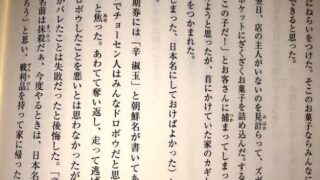 にねらいをつけた。そこのお菓子ならみんな
翌日、店の主人がいないのを見計らって、ズボ
ケットにざくざくお菓子を詰め込んだ。する
「この子だ！」とお客さんに捕まってしまっ
ようと思ったが、首にかけていた家のカギ
をつかまれた。
た、日本名にしておけばよかった）
期券には「辛 淑玉」と朝鮮名が書いて
でチョーセン人はみんなドロボウだと思
と焦った。あわてて奪い返し、走って逃げ
ロボウしたことを悪いとは思わなかったが
がバレたことは失敗だったと後悔した。「
名前は 今度やるときは、日本名
ろう」と思い、戦利品を持って家に帰っ